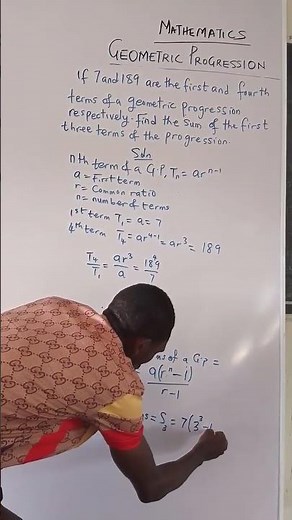 MATHEMATICS
GEOMETRIC PROGRESSION
If 7 and 189 are the first and fourth
terms of a geometric progression
respectively. find the sum of the first
three terms of the progression.
Soln
nth term of a G.P, Tn = ar^(n-1)
a = First term
r = Common ratio
n = number of terms
1st term T₁ = a = 7
4th term T₄ = ar^(4-1) = ar³ = 189
T₄/T₁ = ar³/a = 189/7
ms of a G.P =
a(rⁿ-1)/(r-1)
= S₃ = 7(3³-1